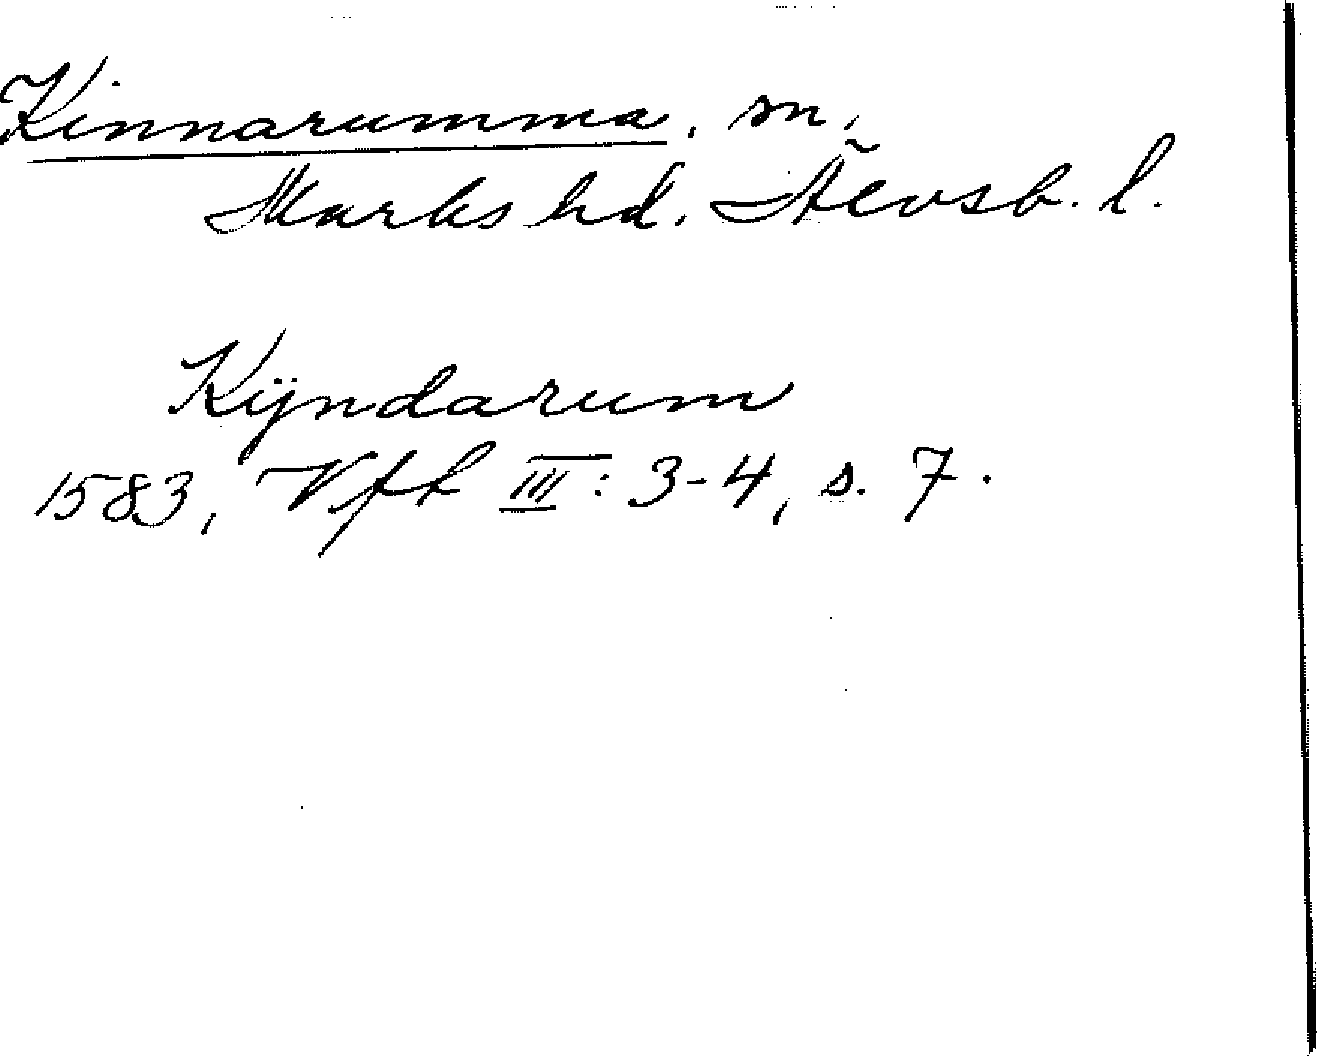 Kinnarumma, sn,
Marks hd. Älvsb. l.
Kÿndarum
1583, Vft III: 3-4, s. 7.